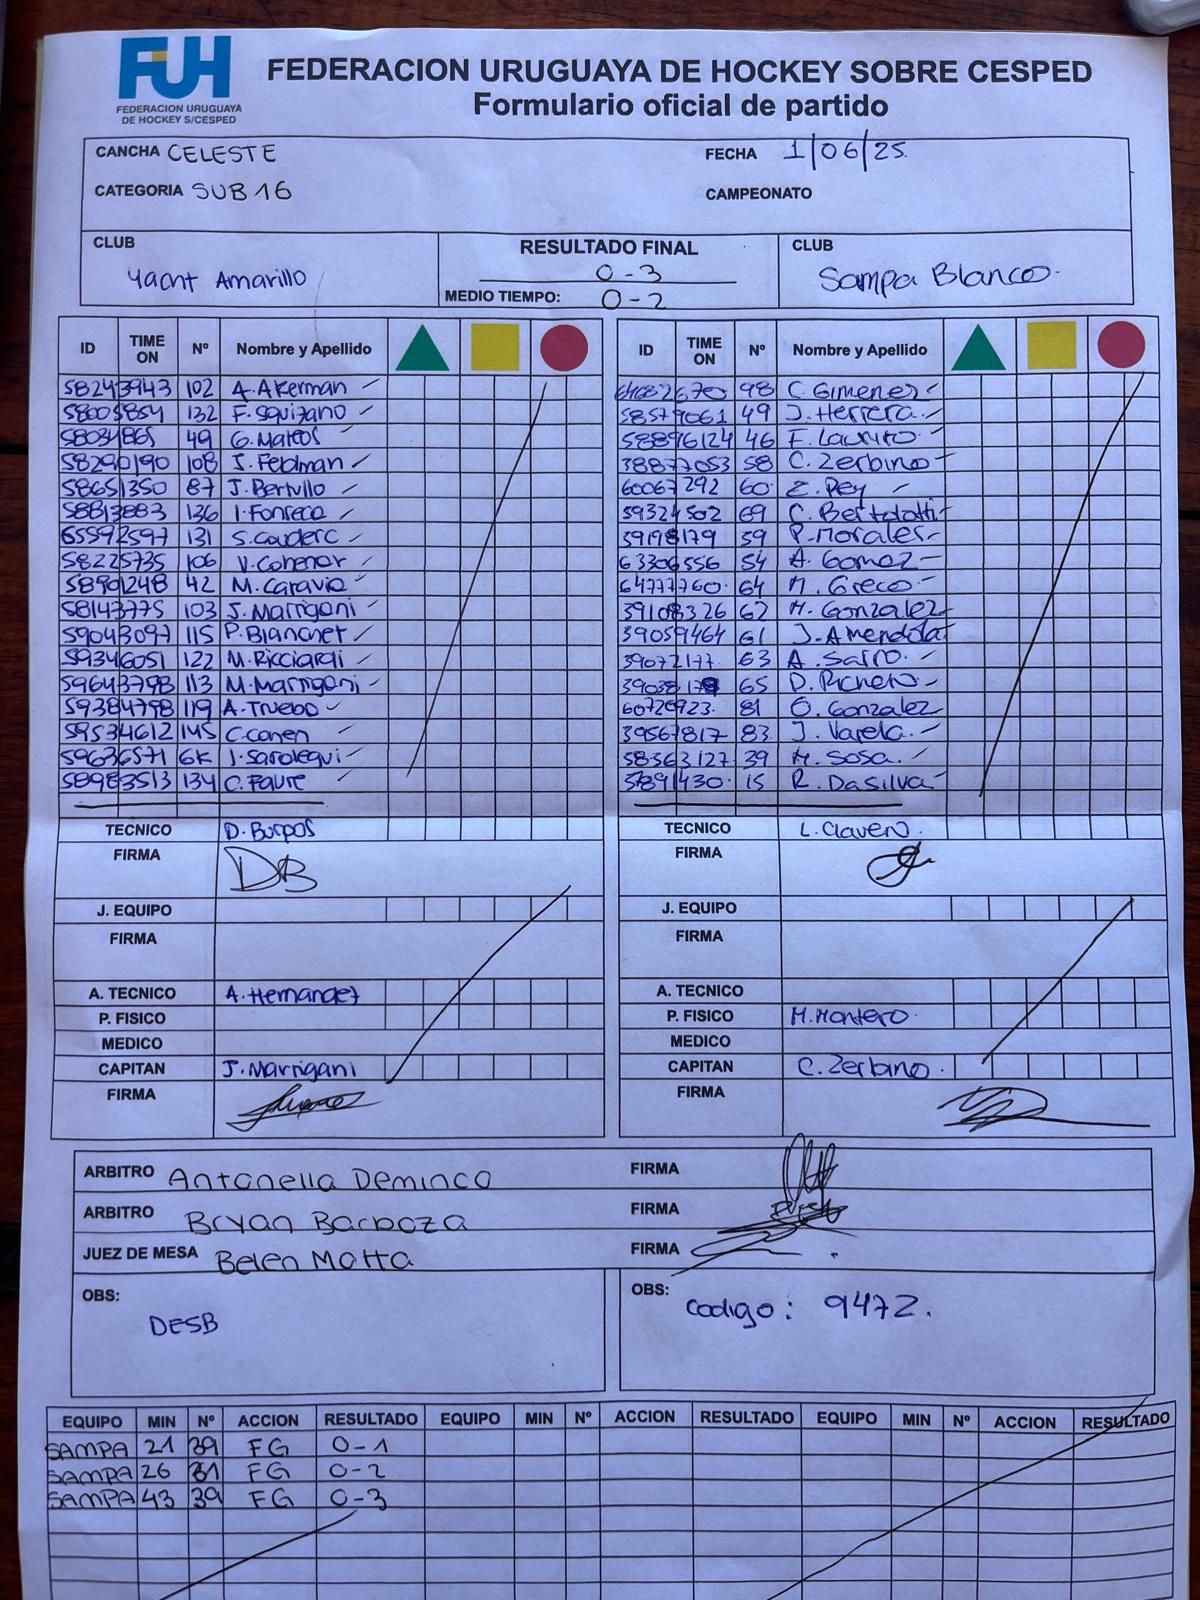 FUH
FEDERACION URUGUAYA
DE HOCKEY S/CESPED
FEDERACION URUGUAYA DE HOCKEY SOBRE CESPED
Formulario oficial de partido
CANCHA CELESTE FECHA 1/06/25
CATEGORIA SUB 16 CAMPEONATO
CLUB RESULTADO FINAL CLUB
Yacht Amarillo 0-3 Sampa Blanco
MEDIO TIEMPO: 0-2
ID TIME ON Nº Nombre y Apellido ID TIME ON Nº Nombre y Apellido
58243943 102 A. Akerman 98 C. Gimenez
58005854 132 F. Squizano 58579061 49 J. Herrera
58034865 49 G. Mateos 58896124 46 F. Laurito
58290190 108 J. Feldman 38877053 58 C. Zerbino
58651350 87 J. Bertullo 60067292 60 E. Rey
58813883 136 I. Fonseca 59324502 69 C. Bertolotti
65592597 131 S. Couderc 59198179 59 P. Morales
58225735 106 V. Cohenar 63306556 54 A. Gomez
58901248 42 M. Caravia 64777760 64 M. Greco
58143775 103 J. Marrigani 39108326 62 M. Gonzalez
59043097 115 P. Blanchet 39059464 61 J. Amendola
59346051 122 M. Ricciardi 39072177 63 A. Sarro
59643798 113 M. Marrigani 65 D. Pichero
59384798 119 A. Trueba 60720923 81 O. Gonzalez
59534612 145 C. Cohen 39567817 83 J. Varela
59636571 6K I. Saralegui 58363127 39 M. Sosa
58983513 134 C. Faure 15 R. Dasilva
TECNICO D. Burgos TECNICO L. Clavero
FIRMA DB FIRMA
J. EQUIPO J. EQUIPO
FIRMA FIRMA
A. TECNICO A. Hernandez A. TECNICO
P. FISICO P. FISICO M. Montero
MEDICO MEDICO
CAPITAN J. Marrigani CAPITAN C. Zerbino
FIRMA FIRMA
ARBITRO Antonella Deminco FIRMA
ARBITRO Bryan Barboza FIRMA
JUEZ DE MESA Belen Motta FIRMA
OBS: DESB OBS: Codigo: 9472.
EQUIPO MIN Nº ACCION RESULTADO EQUIPO MIN Nº ACCION RESULTADO EQUIPO MIN Nº ACCION RESULTADO
SAMPA 21 39 FG 0-1
SAMPA 26 81 FG 0-2
SAMPA 43 39 FG 0-3